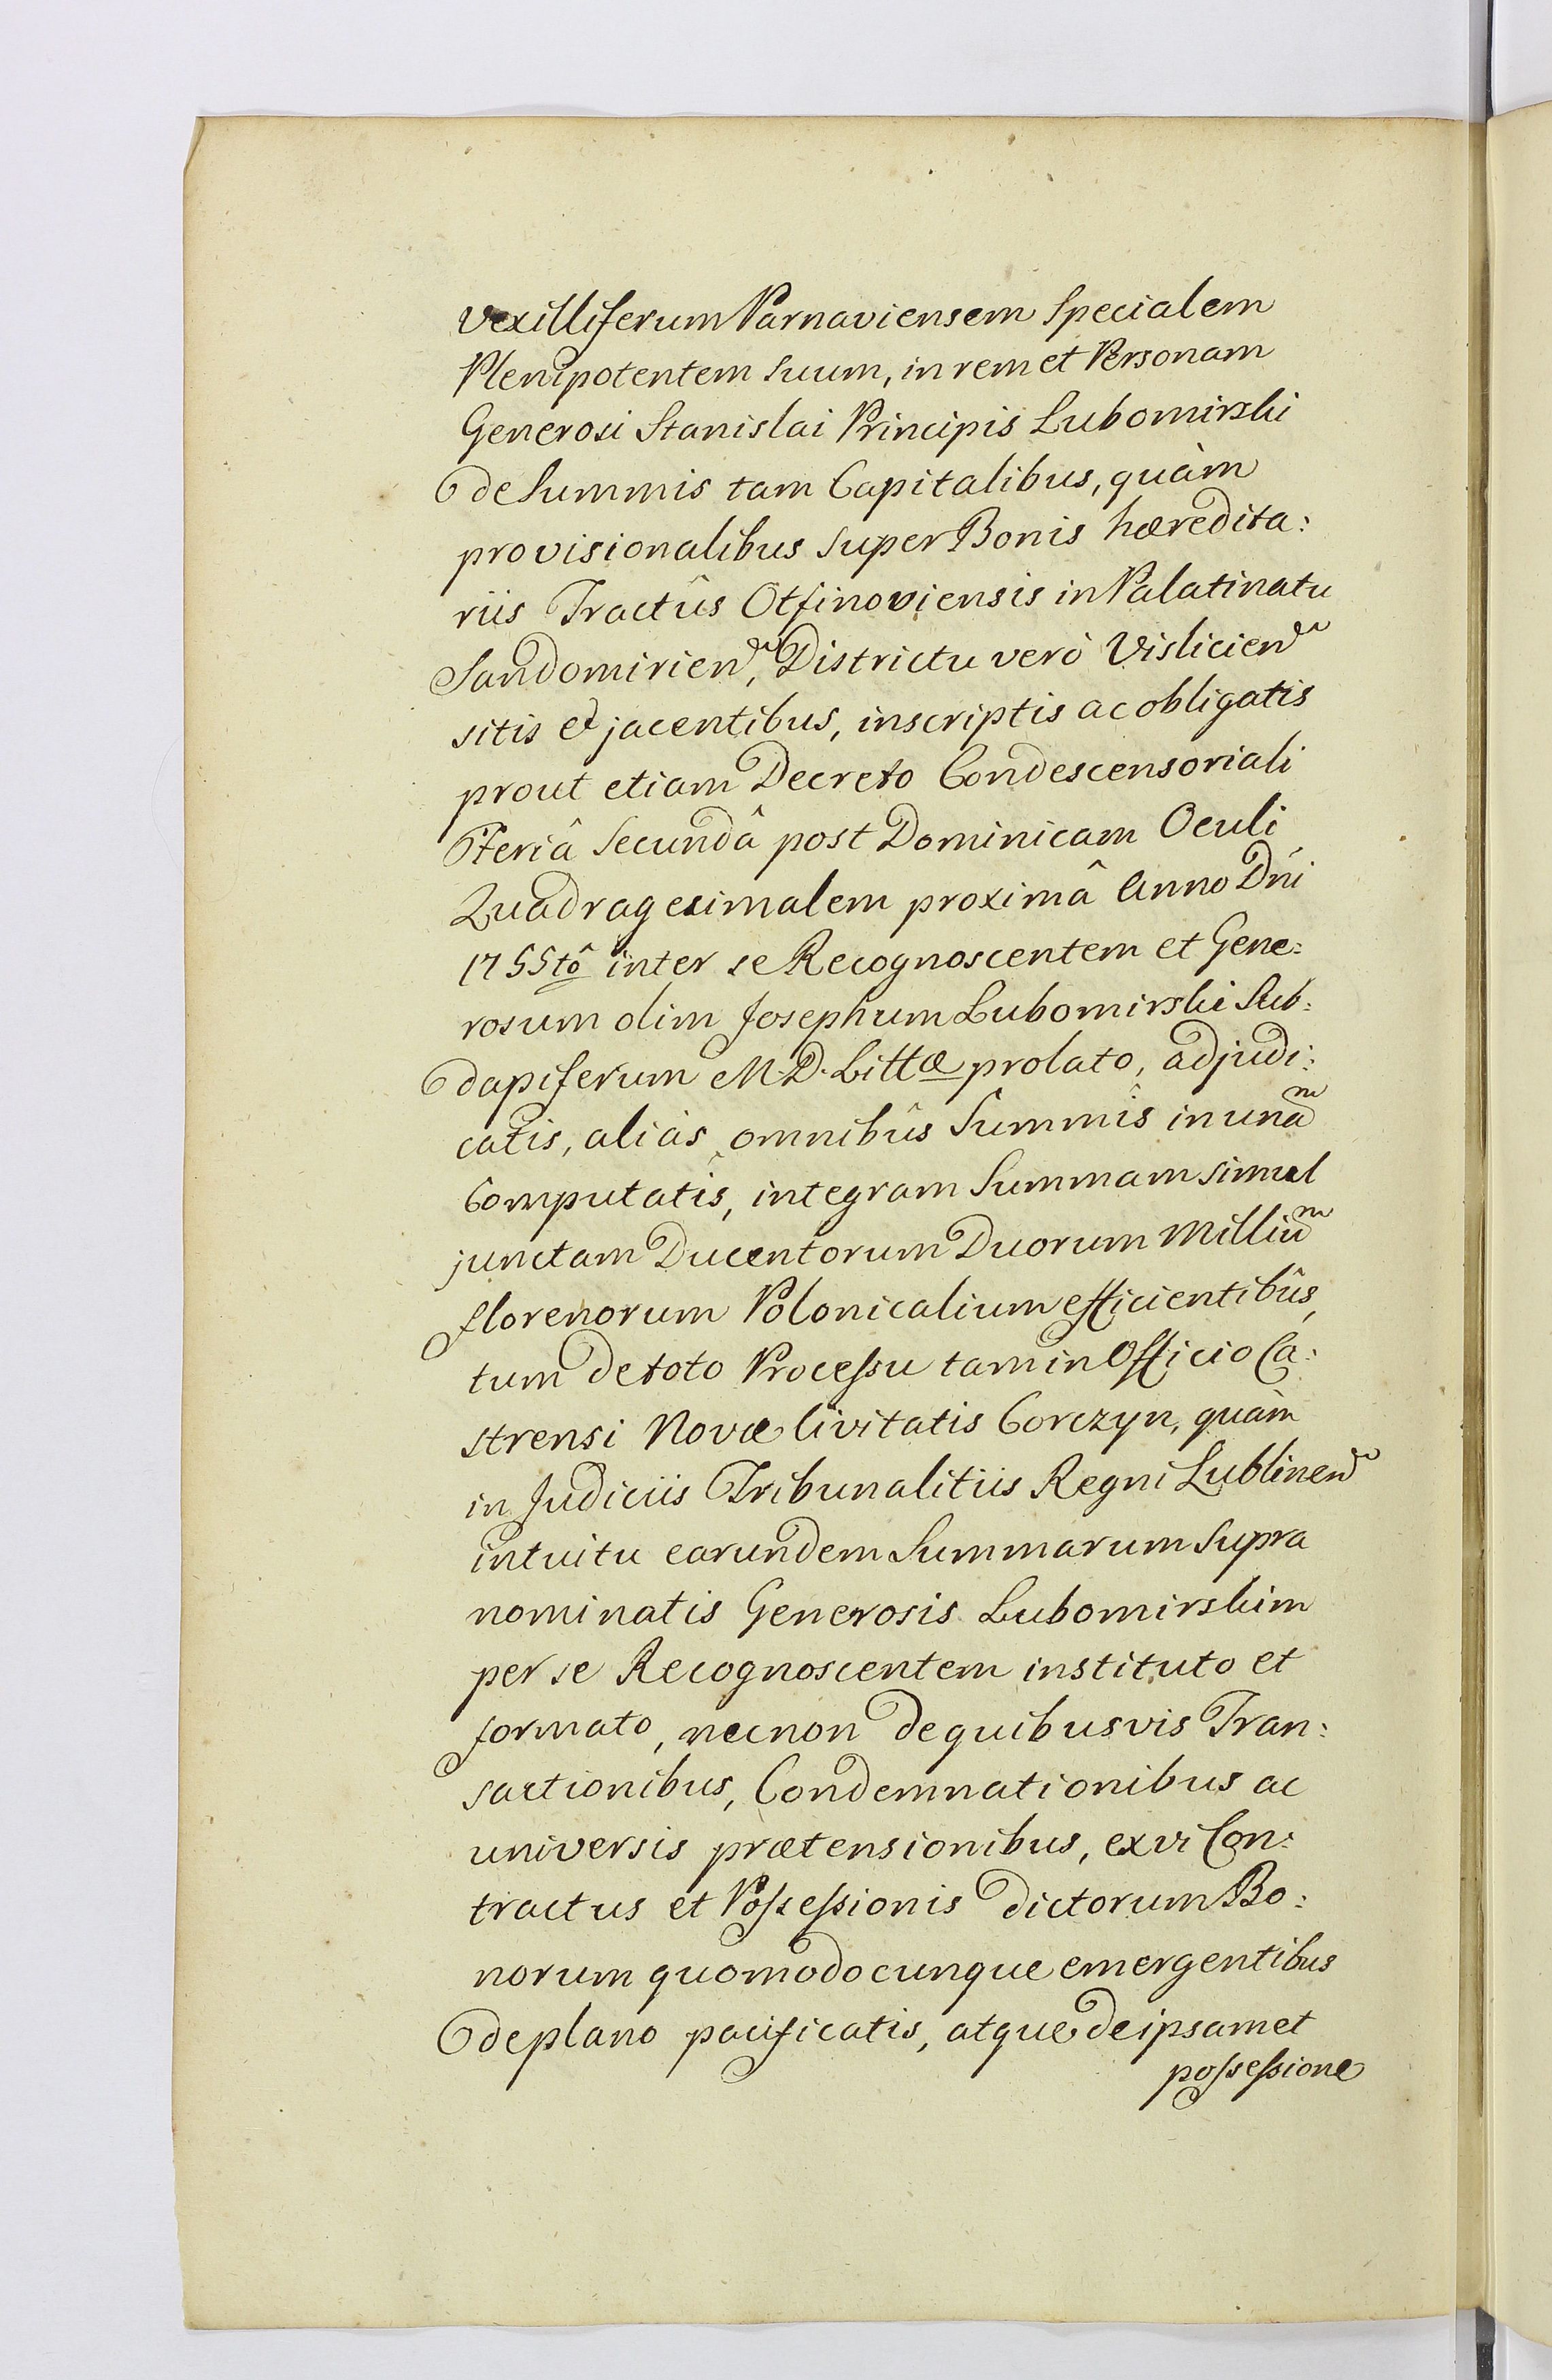 Vexilliferum Parnaviensem Specialem
Plenipotentem Suum, in rem et Personam
Generosi Stanislai Principis Lubomirski
de Summis tam Capitalibus, quàm
provisionalibus super Bonis hæredita:
riis Tractûs Otfinoviensis in Palatinatu
Sandomirien, Districtu verò Vislicien
sitis et jacentibus, inscriptis ac obligatis
prout etiam Decreto Condescensoriali
Feriâ Secundâ post Dominicam Oculi
Quadragesimalem proximâ Anno Dni
1755tô inter se Recognoscentem et Gene:
rosum olim Josephum Lubomirski Sub:
dapiferum M. D. Littæ prolato, adjudi:
catis, aliàs omnibûs Summîs in unam
Computatîs, integram Summam simul
junctam Ducentorum Duorum Millium
florenorum Polonicalium efficientibûs,
tum de toto Processu tam in Officio Ca:
strensi Novæ Civitatis Corczyn, quàm
in Judiciis Tribunalitiis Regni Lublinen
intuitu earundem Summarum Supra
nominatis Generosis Lubomirskim
per se Recognoscentem instituto et
formato, necnon de quibusvis Tran:
sactionibus, Condemnationibus ac
universis prætensionibus, ex vi Con:
tractus et Possessionis dictorum Bo:
norum quomodocunque emergentibus
de plano pacificatis, atque de ipsamet
possessione